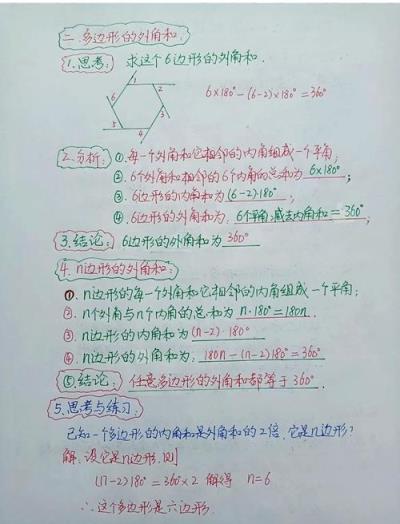 二.多边形的外角和.
1.思考: 求这个6边形的外角和.
1
2
3
4
5
6
6×180°-(6-2)×180°=360°
2.分析: ①.每一个外角和它相邻的内角组成一个平角;
②.6个外角和相邻的6个内角的总和为 6×180° ;
③.6边形的内角和为(6-2)·180° ;
④.6边形的外角和为: 6个平角减去内角和=360° ;
3.结论: 6边形的外角和为 360°
4.n边形的外角和:
①.n边形的每一个外角和它相邻的内角组成一个平角;
②.n个外角与n个内角的总和为 n·180°=180n.
③.n边形的内角和为(n-2)·180°
④.n边形的外角和为: 180n-(n-2)180°=360°
⑤结论: 任意多边形的外角和都等于 360° .
5.思考与练习:
已知一个多边形的内角和是外角和的2倍,它是几边形?
解:设它是n边形,则
(n-2)180°=360°×2 解得 n=6
∴这个多边形是六边形.